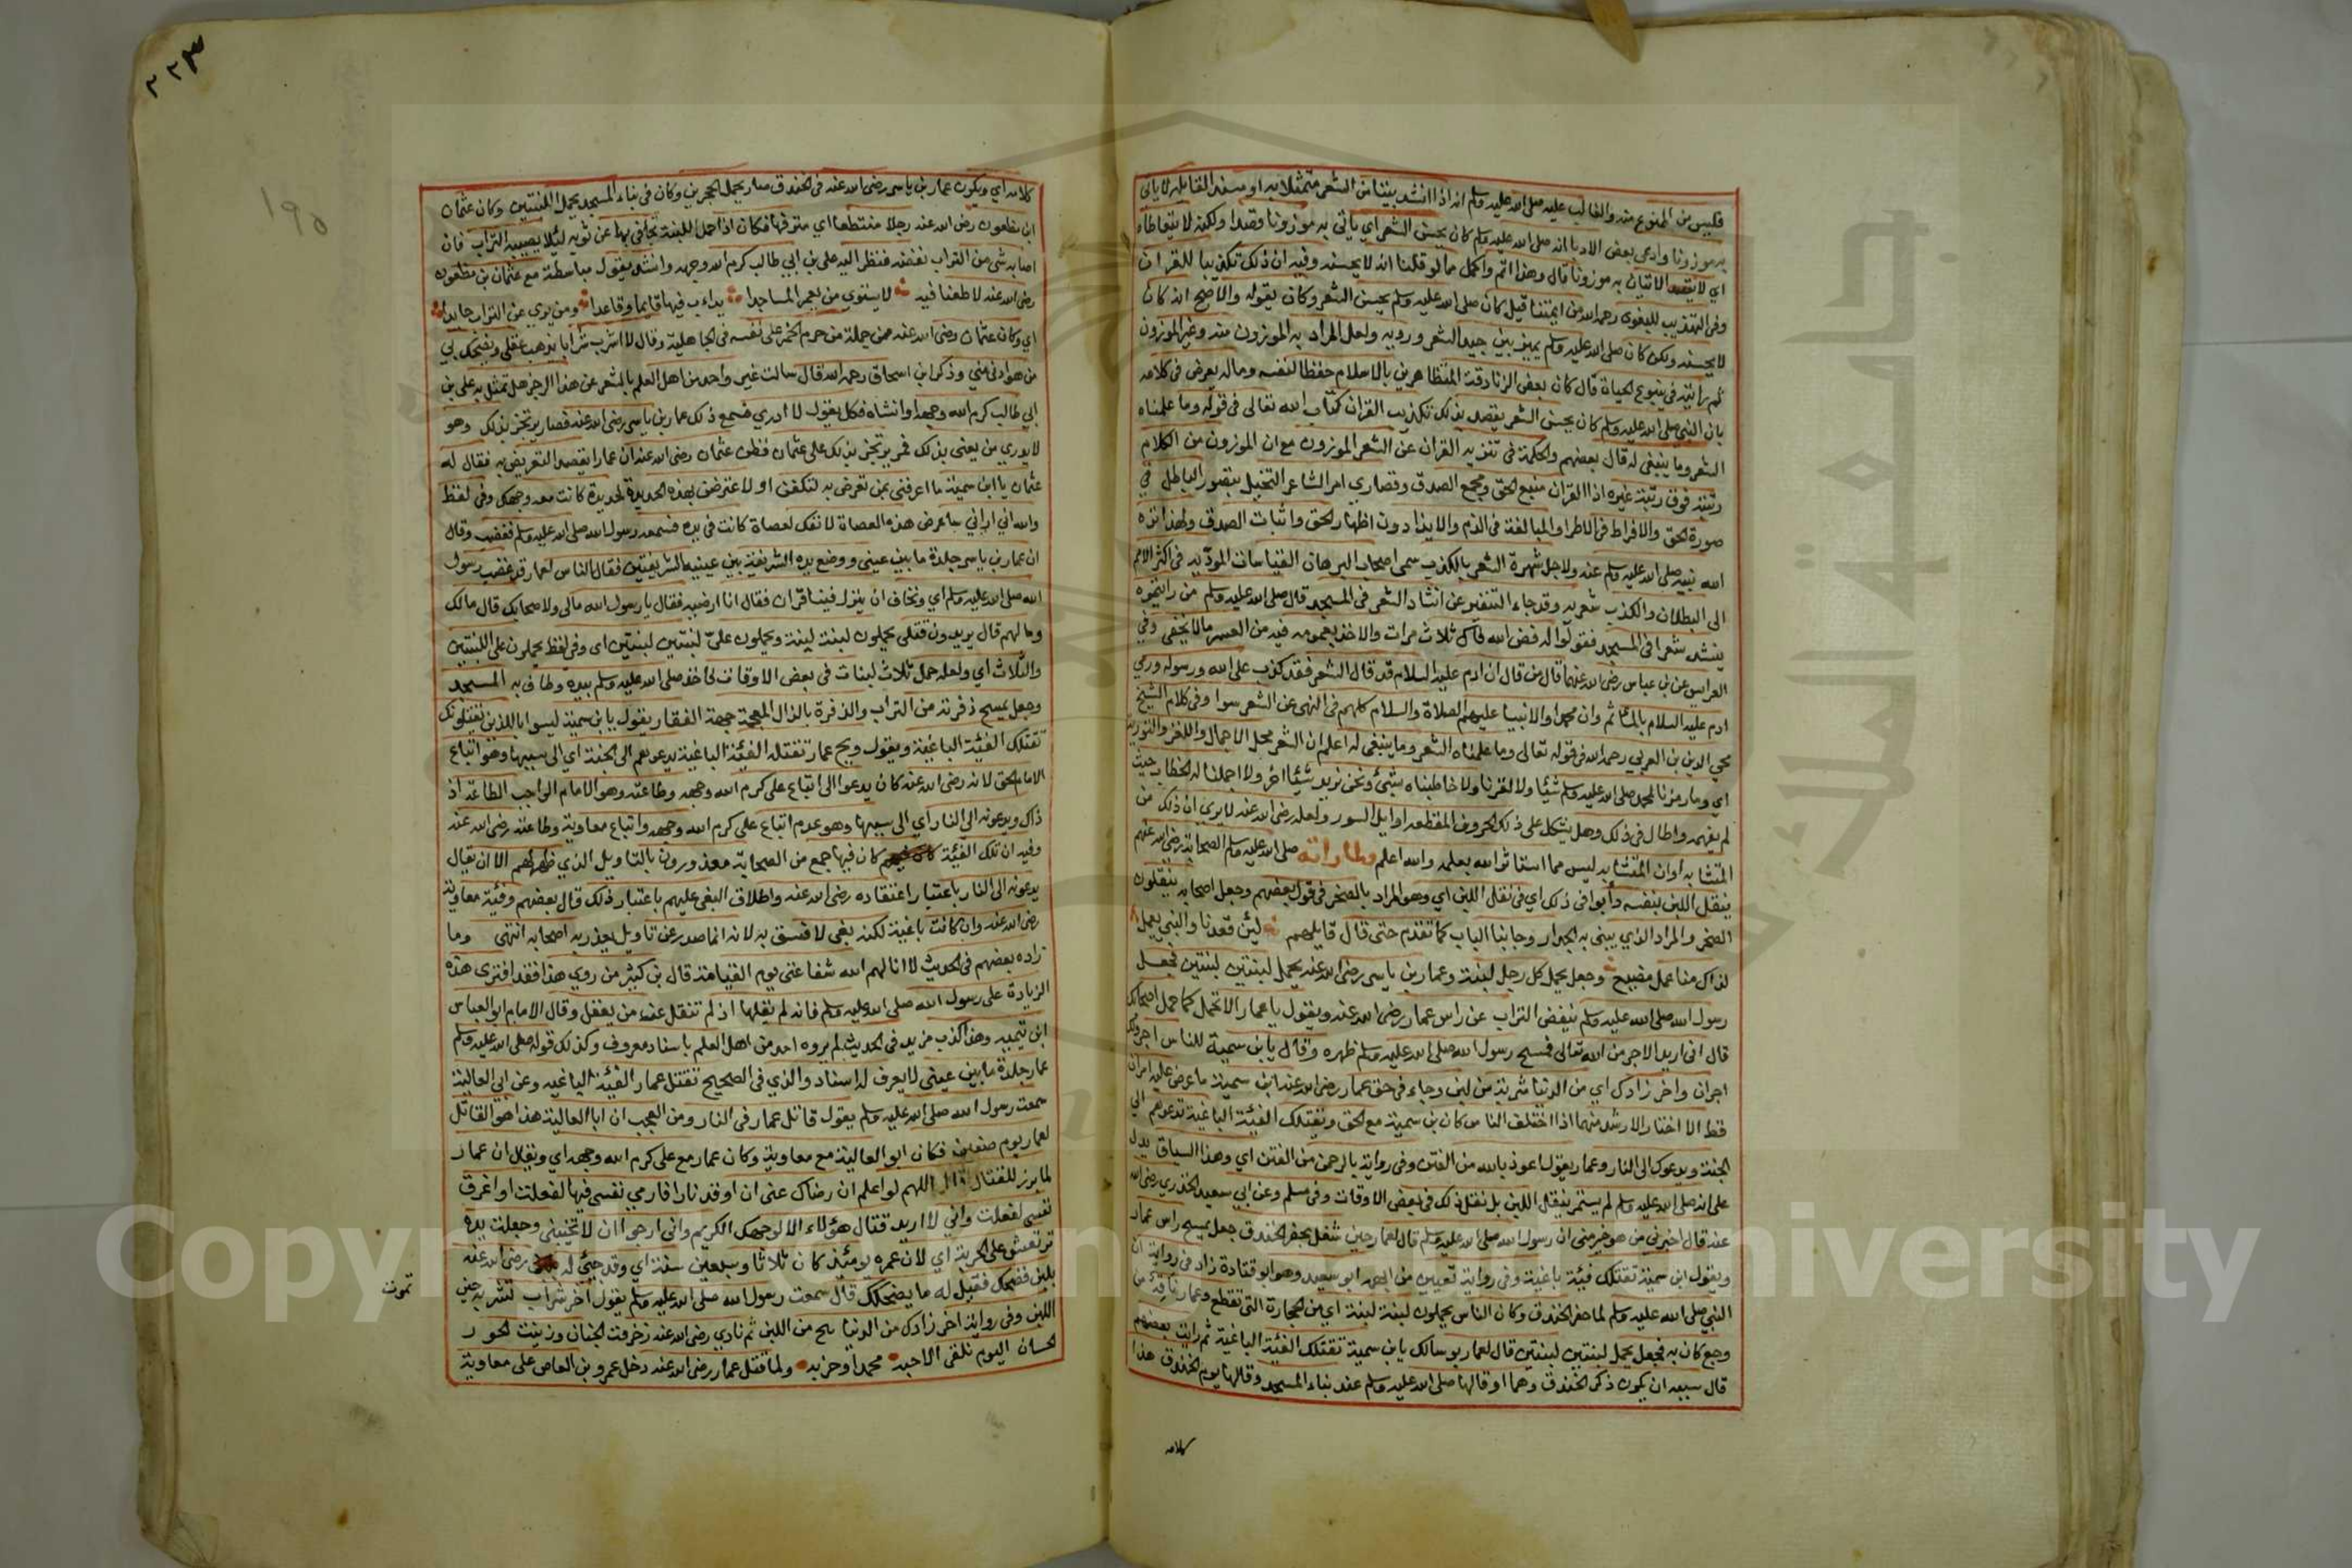 فليس من الممنوع منه والغالب عليه صلى الله عليه وسلم انه اذا انشد بيتا من الشعر متمثلا به او مسندا لقايله لا ياتي
به موزونا وادعى بعض الادبا انه صلى الله عليه وسلم كان يحسن الشعر اي ياتي به موزونا وقصدا ولكنه لا يتعاطاه
اي لا يقصد الاتيان به موزونا قال وهذا اتم واكمل مما لو قلنا انه لا يحسنه وفيه ان ذلك تكذيبا للقران
وفي التهذيب للبغوى رحمه الله من ايمتنا قيل كان صلى الله عليه وسلم يحسن الشعر وكان يقوله والاضح انه كان
لا يحسنه ولكن كان صلى الله عليه وسلم يميز بين جيد الشعر ورديه ولعل المراد به الموزون منه وغير الموزون
ثم رايته في ينبوع الحياة قال كان بعض الزنادقة المتظاهرين بالاسلام حفظا لنفسه وماله يعرض في كلامه
بان النبي صلى الله عليه وسلم كان يحسن الشعر يقصد بذلك تكذيب القران كتاب الله تعالى في قوله وما علمناه
الشعر وما ينبغي له قال بعضهم والحكمة في تنزيه القران عن الشعر الموزون مع ان الموزون من الكلام
رتبته فوق رتبة غيره اذ القران منبع الحق ومجمع الصدق وقصارى امر الشاعر التخييل بتصور الباطل في
صورة الحق والافراط في الاطراء والمبالغة في الذم والايذاء دون اظهار الحق واثبات الصدق ولهذا نزه
الله نبيه صلى الله عليه وسلم عنه ولاجل شهرة الشعر بالكذب سمى اصحاب البرهان القياسات المودية في اكثر الامر
الى البطلان والكذب شعرية وقد جاء التنفير عن انشاد الشعر في المسجد قال صلى الله عليه وسلم من رايتموه
ينشد شعرا في المسجد فقولوا له فض الله فاك ثلاث مرات والاخذ بعمومه فيه من العسر مالا يخفى وفي
العرايس عن بن عباس رضى الله عنهما قال من قال ان ادم عليه السلام قد قال الشعر فقد كذب على الله ورسوله ورمى
ادم عليه السلام بالماثم وان محمدا والانبيا عليهم الصلاة والسلام كلهم في النهى عن الشعر سوا وفي كلام الشيخ
محي الدين بن العربي رحمه الله في قوله تعالى وما علمناه الشعر وما ينبغي له اعلم ان الشعر محل الاجمال واللغز والتورية
اي وما رمزنا لمحمد صلى الله عليه وسلم شيئا ولا لغزنا ولا خاطبناه بشئ ونحن نريد شيئا اخر ولا اجملنا له الخطاب حيث
لم يفهمه واطال في ذلك وهل يشكل على ذلك الحروف المقطعه اوايل السور ولعله رضى الله عنه لا يرى ان ذلك من
المتشابه او ان المتشابه ليس مما استاثر الله بعلمه والله اعلم ولما راته صلى الله عليه وسلم الصحابة رضى الله عنهم
ينقل اللبن بنفسه دأبوا في ذلك اي في نقل اللبن اي وهو المراد بالصخر في قول بعضهم وجعل اصحابه ينقلون
الصخر والمراد الذي يبنى به الجدار وجابنا الباب كما تقدم حتى قال قايلهم لئن قعدنا والنبي يعمل
لذاك منا عمل مضيع وجعل يحمل كل رجل لبنة وعمار بن ياسر رضى الله عنه يحمل لبنتين لبنتين فجعل
رسول الله صلى الله عليه وسلم ينفض التراب عن راس عمار رضى الله عنه ويقول يا عمار الا تحمل كما يحمل اصحابك
قال اني اريد الاجر من الله تعالى فمسح رسول الله صلى الله عليه وسلم ظهره وقال يا بن سمية للناس اجر ولك
اجران واخر زادك اي من الدنيا شربة من لبن وجاء في حق عمار رضى الله عنه ابن سمية ما عرض عليه امران
قط الا اختار الارشد منهما اذا اختلف الناس كان بن سمية مع الحق وتقتلك الفئية الباغية تدعوهم الى
الجنة ويدعوك الى النار وعمار يقول اعوذ بالله من الفتن وفي رواية بالرحمن من الفتن اي وهذا السياق يدل
على انه صلى الله عليه وسلم لم يستمر ينقل اللبن بل نقل ذلك في بعض الاوقات وفي مسلم وعن ابي سعيد الخدري رضى الله
عنه قال اخبرني من هو خير مني ان رسول الله صلى الله عليه وسلم قال لعمار حين شغل بحفر الخندق جعل يمسح راس عمار
ويقول ابن سمية تقتلك فيئة باغية وفي رواية تعيين من ابهمه ابو سعيد وهو ابو قتادة زاد في رواية ان
النبي صلى الله عليه وسلم لما حفر الخندق وكان الناس يحملون لبنة لبنة اي من الحجارة التي تقطع وعمار ناقه من
وجع كان به فجعل يحمل لبنتين لبنتين قال لعمار بوسالك يا بن سمية تقتلك الفئية الباغية ثم رايت بعضهم
قال يشبه ان يكون ذكر الخندق وهما او قالها صلى الله عليه وسلم عند بناء المسجد وقالها يوم الخندق هذا
كلامه
٢٢٣
١٩٥
كلامه اي ويكون عمار بن ياسر رضى الله عنه في الخندق صار يحمل الحجرين وكان في بناء المسجد يحمل اللبنتين وكان عثمان
ابن مظعون رضى الله عنه رجلا متنطعا اي مترفها فكان اذا حمل اللبنة يجافي بها عن ثوبه ليئلا يصيبه التراب فان
اصابه شى من التراب نفضه فنظر اليه على بن ابي طالب كرم الله وجهه وانشد يقول مباسطة مع عثمان بن مظعون
رضى الله عنه لا طعنا فيه لا يستوي من يعمر المساجدا يداءب فيها قايما وقاعدا ومن يرى عن التراب حايدا
اي وكان عثمان رضى الله عنه من جملة من حرم الخمر على نفسه في الجاهلية وقال لا اشرب شرابا يذهب عقلي ويضحك بي
من هو ادنى مني وذكر ابن اسحاق رحمه الله قال سالت غير واحد من اهل العلم بالشعر عن هذا الرجز هل تمثل به على بن
ابي طالب كرم الله وجهه او انشاه فكل يقول لا ادري فسمع ذلك عمار بن ياسر رضى الله عنه فصار يرتجز بذلك وهو
لا يدري من يعنى بذلك فمر يرتجز بذلك على عثمان فظن عثمان رضى الله عنه ان عمارا يقصد التعريض به فقال له
عثمان يا ابن سمية ما اعرفني بمن تعرض به لتكفن او لاعترضن بهذه الحديدة لحديدة كانت معه وجهك وفي لفظ
والله اني اراني ساعرض هذه العصاة لانفك لعصاة كانت في يده فسمعه رسول الله صلى الله عليه وسلم فغضب وقال
ان عمار بن ياسر جلدة ما بين عيني ووضع يده الشريفة بين عينيه الشريفتين فقال الناس لعمار قد غضب رسول
الله صلى الله عليه وسلم اي ونخاف ان ينزل فينا قران فقال انا ارضيه فقال يا رسول الله مالي ولاصحابك قال مالك
وما لهم قال يريدون قتلي يحملون لبنة لبنة ويحملون علىّ لبنتين لبنتين اى وفي لفظ يحملون على اللبنتين
والثلاث اي ولعله حمل ثلاث لبنات في بعض الاوقات فاخذ صلى الله عليه وسلم بيده وطاف به المسجد
وجعل يمسح ذفرته من التراب والذفرة بالذال المعجمة جهة القفا ويقول يا بن سمية ليسوا بالذين يقتلونك
تقتلك الفئية الباغية ويقول ويح عمار تقتله الفئية الباغية يدعوهم الى الجنة اي الى سببها وهو اتباع
الامام الحق لانه رضى الله عنه كان يدعوا الى اتباع على كرم الله وجهه وطاعته وهو الامام الواجب الطاعة اذ
ذاك ويدعونه الى النار اي الى سببها وهو عدم اتباع على كرم الله وجهه واتباع معاوية وطاعته رضى الله عنه
وفيه ان تلك الفئية كان فيها جمع من الصحابة معذورون بالتاويل الذي ظهر لهم الا ان يقال
يدعونه الى النار باعتبار اعتقاده رضى الله عنه واطلاق البغى عليهم باعتبار ذلك قال بعضهم وفئية معاوية
رضى الله عنه وان كانت باغية لكنه بغى لا فسق به لانه انما صدر عن تاويل يعذر به اصحابه انتهى وما
زاده بعضهم في الحديث لا انالهم الله شفاعتي يوم القيامة قال بن كثير من روى هذا فقد افترى هذه
الزيادة على رسول الله صلى الله عليه وسلم فانه لم يقلها اذ لم تنقل عنه من يعقل وقال الامام ابو العباس
ابن تيمية وهذا كذب مزيد في الحديث لم يروه احد من اهل العلم باسناد معروف وكذلك قوله صلى الله عليه وسلم
عمار جلدة ما بين عيني لا يعرف له اسناد والذي في الصحيح تقتل عمار الفئية الباغيه وعن ابي العالية
سمعت رسول الله صلى الله عليه وسلم يقول قاتل عمار في النار ومن العجب ان ابا العالية هذا هو القاتل
لعمار يوم صفين فكان ابو العالية مع معاوية وكان عمار مع على كرم الله وجهه اي ويقال ان عمار
لما برز للقتال قال اللهم لو اعلم ان رضاك عني ان اوقد نارا فارمي نفسي فيها لفعلت او اغرق
نفسي لفعلت واني لا اريد قتال هؤلاء الا لوجهك الكريم واني ارجوا ان لا تخيبني وجعلت يده
ترتعش على الحربة اي لان عمره يومئذ كان ثلاثا وسبعين سنة اي وقد جئ له رضى الله عنه
بلبن فضحك فقيل له ما يضحكك قال سمعت رسول الله صلى الله عليه وسلم يقول اخر شراب تشربه حين
تموت
اللبن وفي رواية اخر زادك من الدنيا من اللبن ثم نادي رضى الله عنه زخرفت الجنان وزينت الحور
الحسان اليوم نلقى الاحبه محمدا وحزبه ولما قتل عمار رضى الله عنه دخل عمرو بن العاص على معاوية
Copyright © King Saud University
جامعة الملك سعود